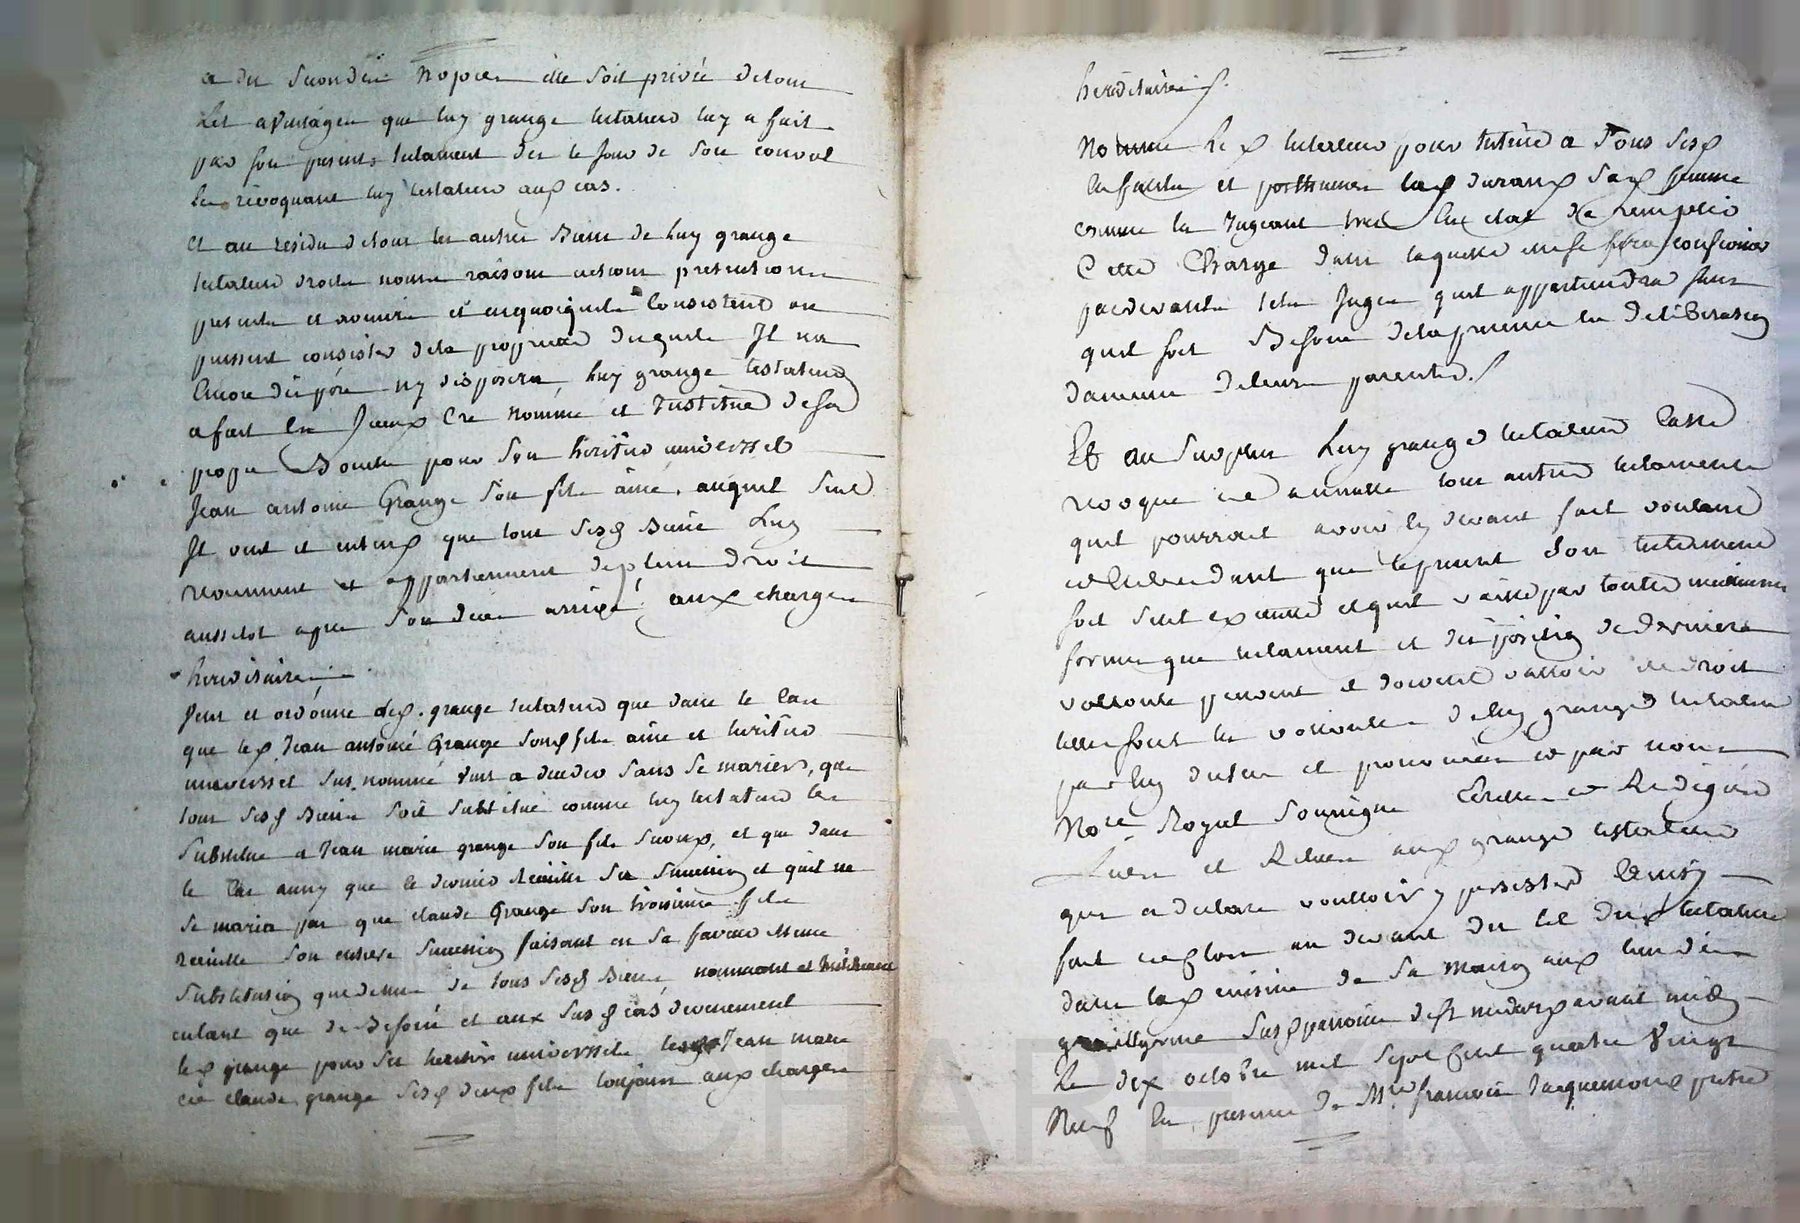 a des secondes nopces elle soit privée de tous
les avantages que luy grange testateur luy a fait
par son present testament des le jour de son convol
les révoquant luy testateur aud cas.
Et au residu de tous les autres Biens de luy grange
testateur droits noms raisons actions pretentions
presents et avenirs et en quoiquils consistent ou
puissent consister de la propriété desquels Il na
Encore disposé ny disposera, luy grange testateur
a fait Cré nommé et Institué de sa
propre Bouche pour son heritier universel
Jean antoine Grange son fils ainé. auquel seul
Il veut et entend que tous sesd Biens Luy
reviennent et appartiennent de plein droit
aussitot apres son deces arrivé, aux charges
hereditaires
Veut et ordonne led. grange testateur que dans le Cas
que led Jean antoine Grange sond fils ainé et heritier
universel sus nommé vint a deceder sans se marier, que
tous sesd Biens soit substitué comme luy testateur les
substitue a Jean marie grange son fils second, et que dans
le Cas que le dernier recueille sa succession et quil ne
se maria pas que claude Grange son troisieme fils
recueille son entiere succession faisant en sa faveur Meme
substitution que dessus de tous sesd Biens, nommant et instituant
entant que de Besoin et aux susd cas devenement
led grange pour ses heritiers universels lesd Jean marie
et claude grange sesd deux fils toujours aux charges
hereditaires
Nomme Led testateur pour tutrice a Tous sesd
Enfants et posthumes lad durand sad femme
comme la Jugeant En Etat de remplir
Cette Charge dans laquelle Elle se fera confirmer
pardevant tels Juges quil appartiendra sans
quil soit Besoin de la presence ni deliberation
daucuns de leurs parents.
Et au surplus Luy grange testateur Casse
revoque et annulle tous autres testaments
quil pourrait avoir cy devant fait voulant
et Entendant que le present son testament
soit seul executé et quil vaille par toutes meilleures
formes que testament et disposition de derniere
volonté peuvent et doivent valloir de droit
telles sont les volontés de luy grange testateur
par luy dictées et prononcées et par nous
Nore Royal soussigné Ecrittes et Redigées
Lues et Relues aud grange testateur
qui a declaré vouloir y persister Cesmis
fait et clos au devant du lit dud testateur
dans lad cuisine de sa maison aud lieu des
susd paroisse avant midy
Le dix octobre mil sept Cent quatre Vingt
Neuf En presence de Mre francois Jacquemond pretre